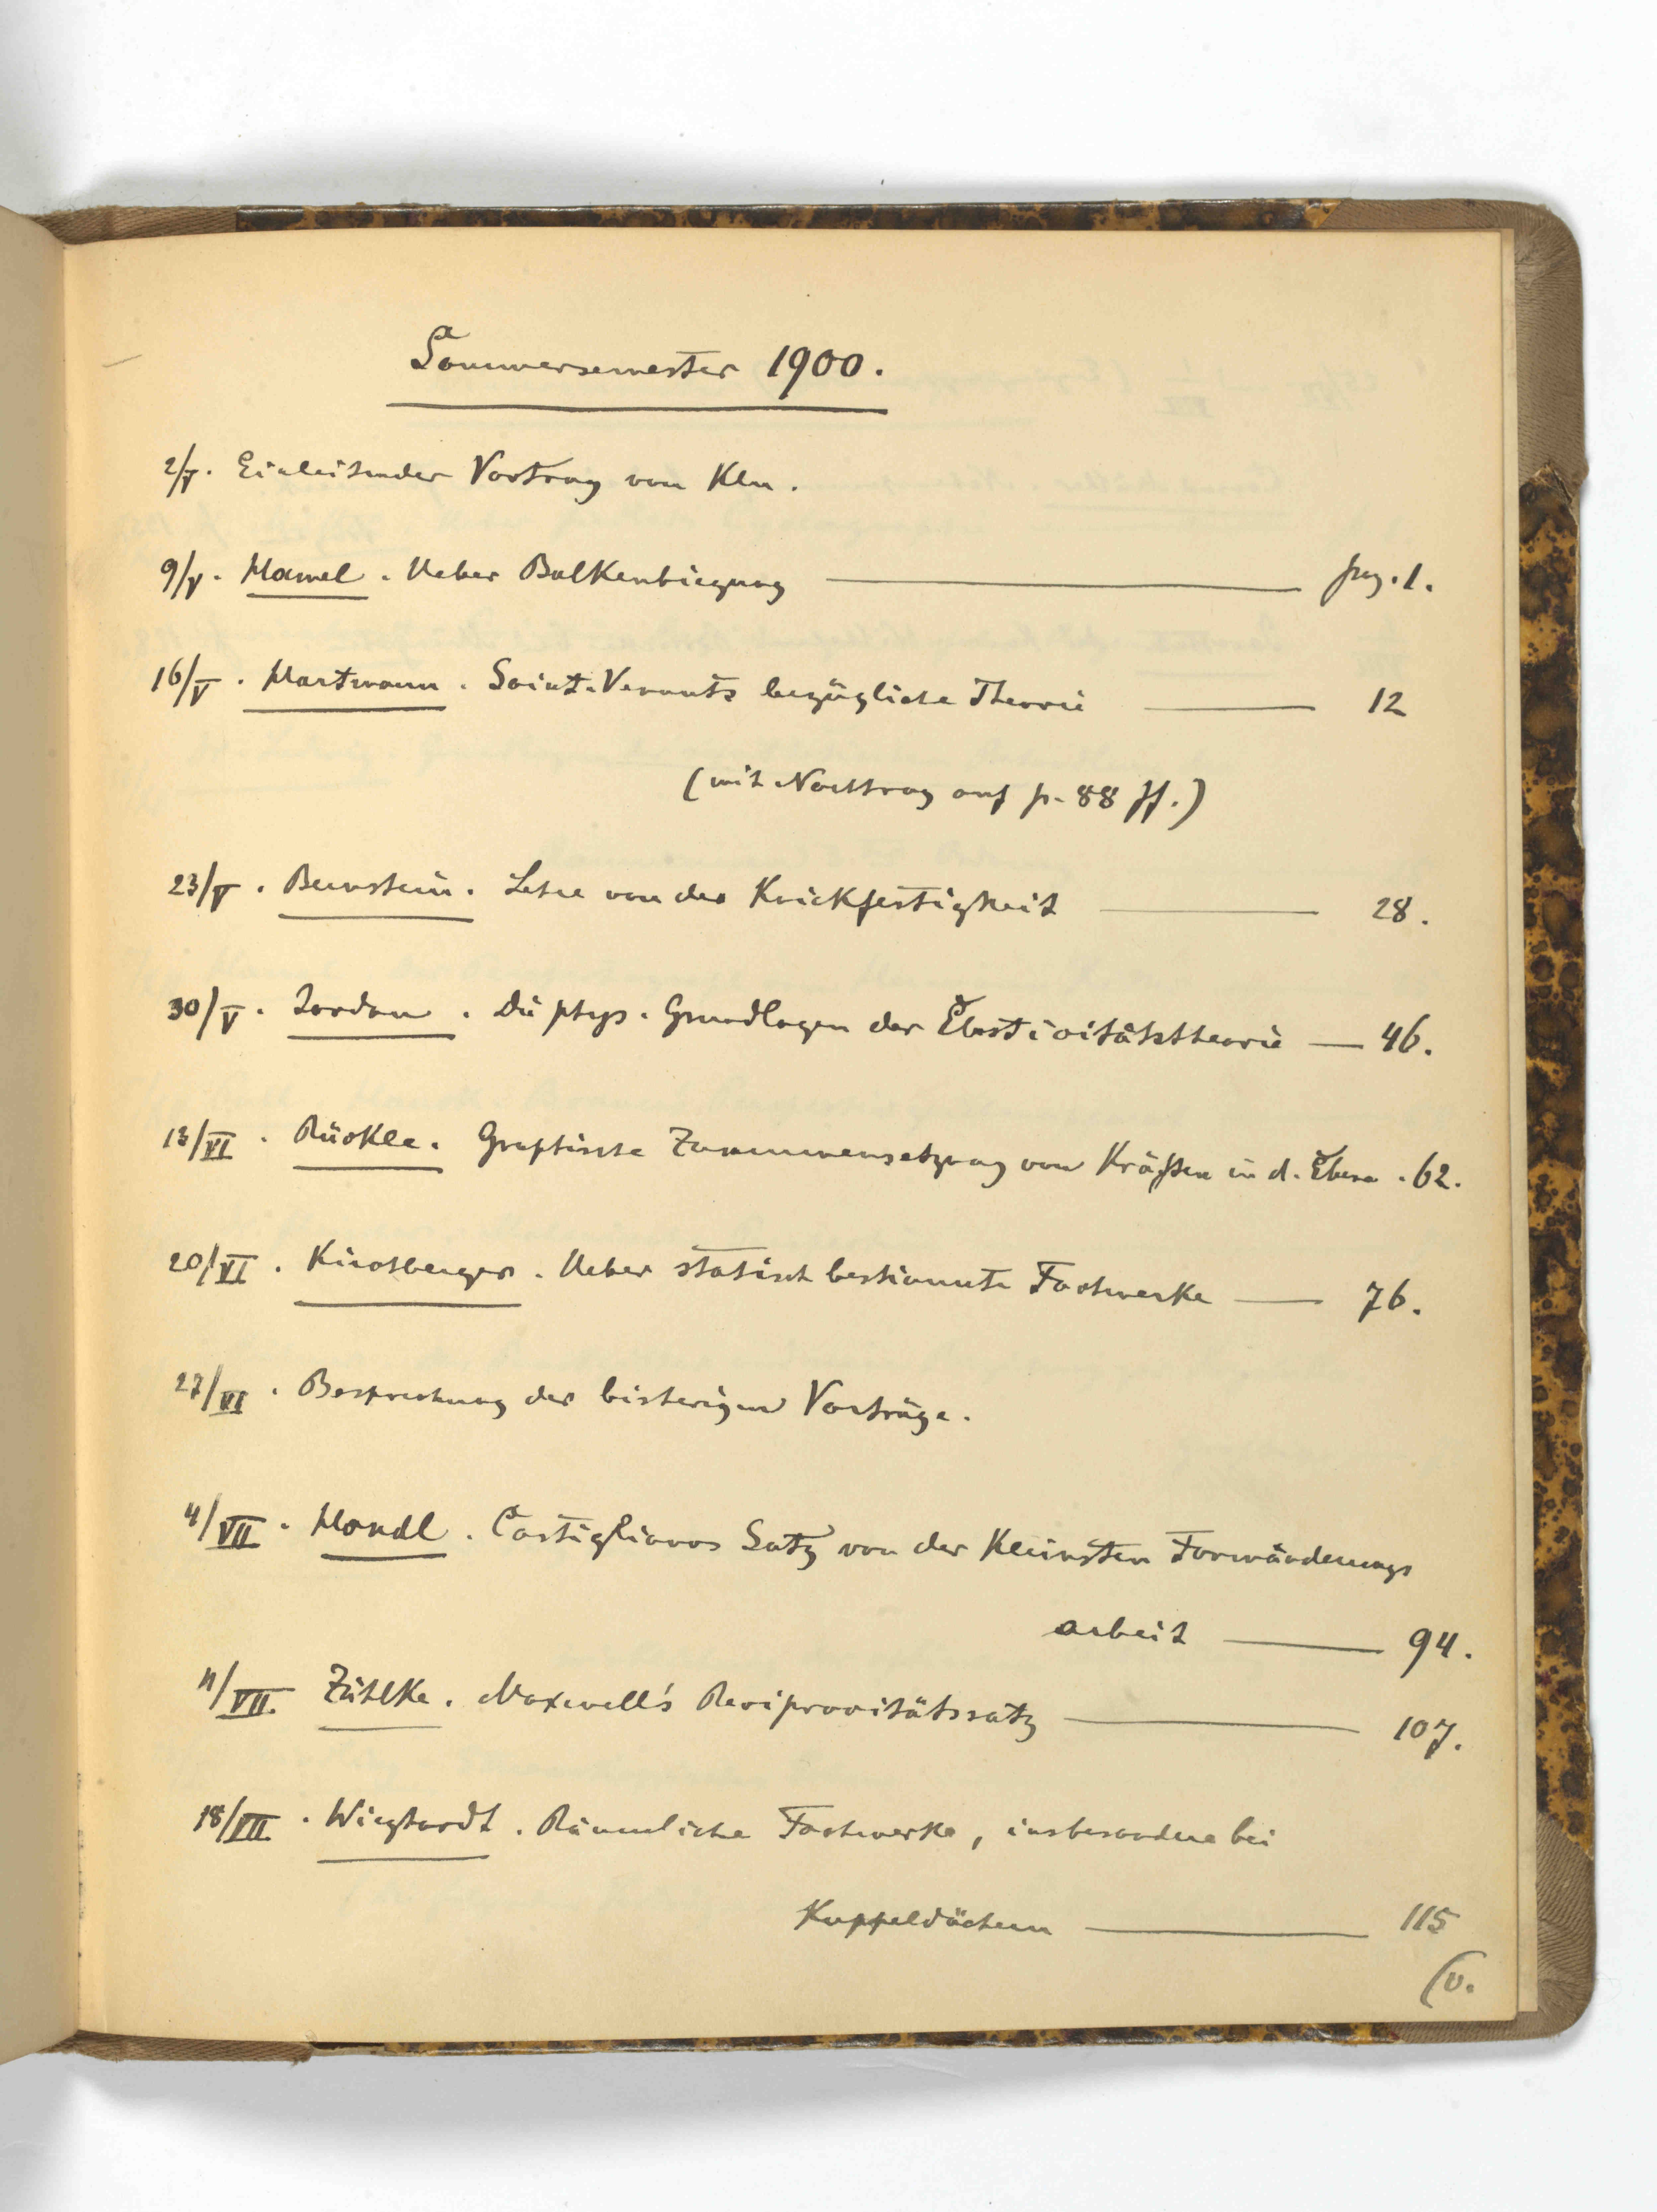 Sommersemester 1900.
2/V. Einleitender Vortrag von Kln.
9/V. Hamel. Ueber Balkenbiegung — pag. 1.
16/V. Hartmann. Saint-Venants bezügliche Theorie — 12
(mit Nachtrag auf p. 88 ff.)
23/V. Bernstein. Lehre von der Knickfestigkeit — 28.
30/V. Jordan. Die phys. Grundlagen der Elasticitätstheorie — 46.
13/VI. Rückle. Graphische Zusammensetzung von Kräften in d. Ebene. 62.
20/VI. Kirchberger. Ueber statisch bestimmte Fachwerke — 76.
27/VI. Besprechung der bisherigen Vorträge.
4/VII. Handl. Castiglianos Satz von der kleinsten Formänderungs
arbeit — 94.
11/VII. Zühlke. Maxwell's Reciprocitätssatz — 107.
18/VII. Wieghardt. Räumliche Fachwerke, insbesondere bei
Kuppeldächern — 115
(v.